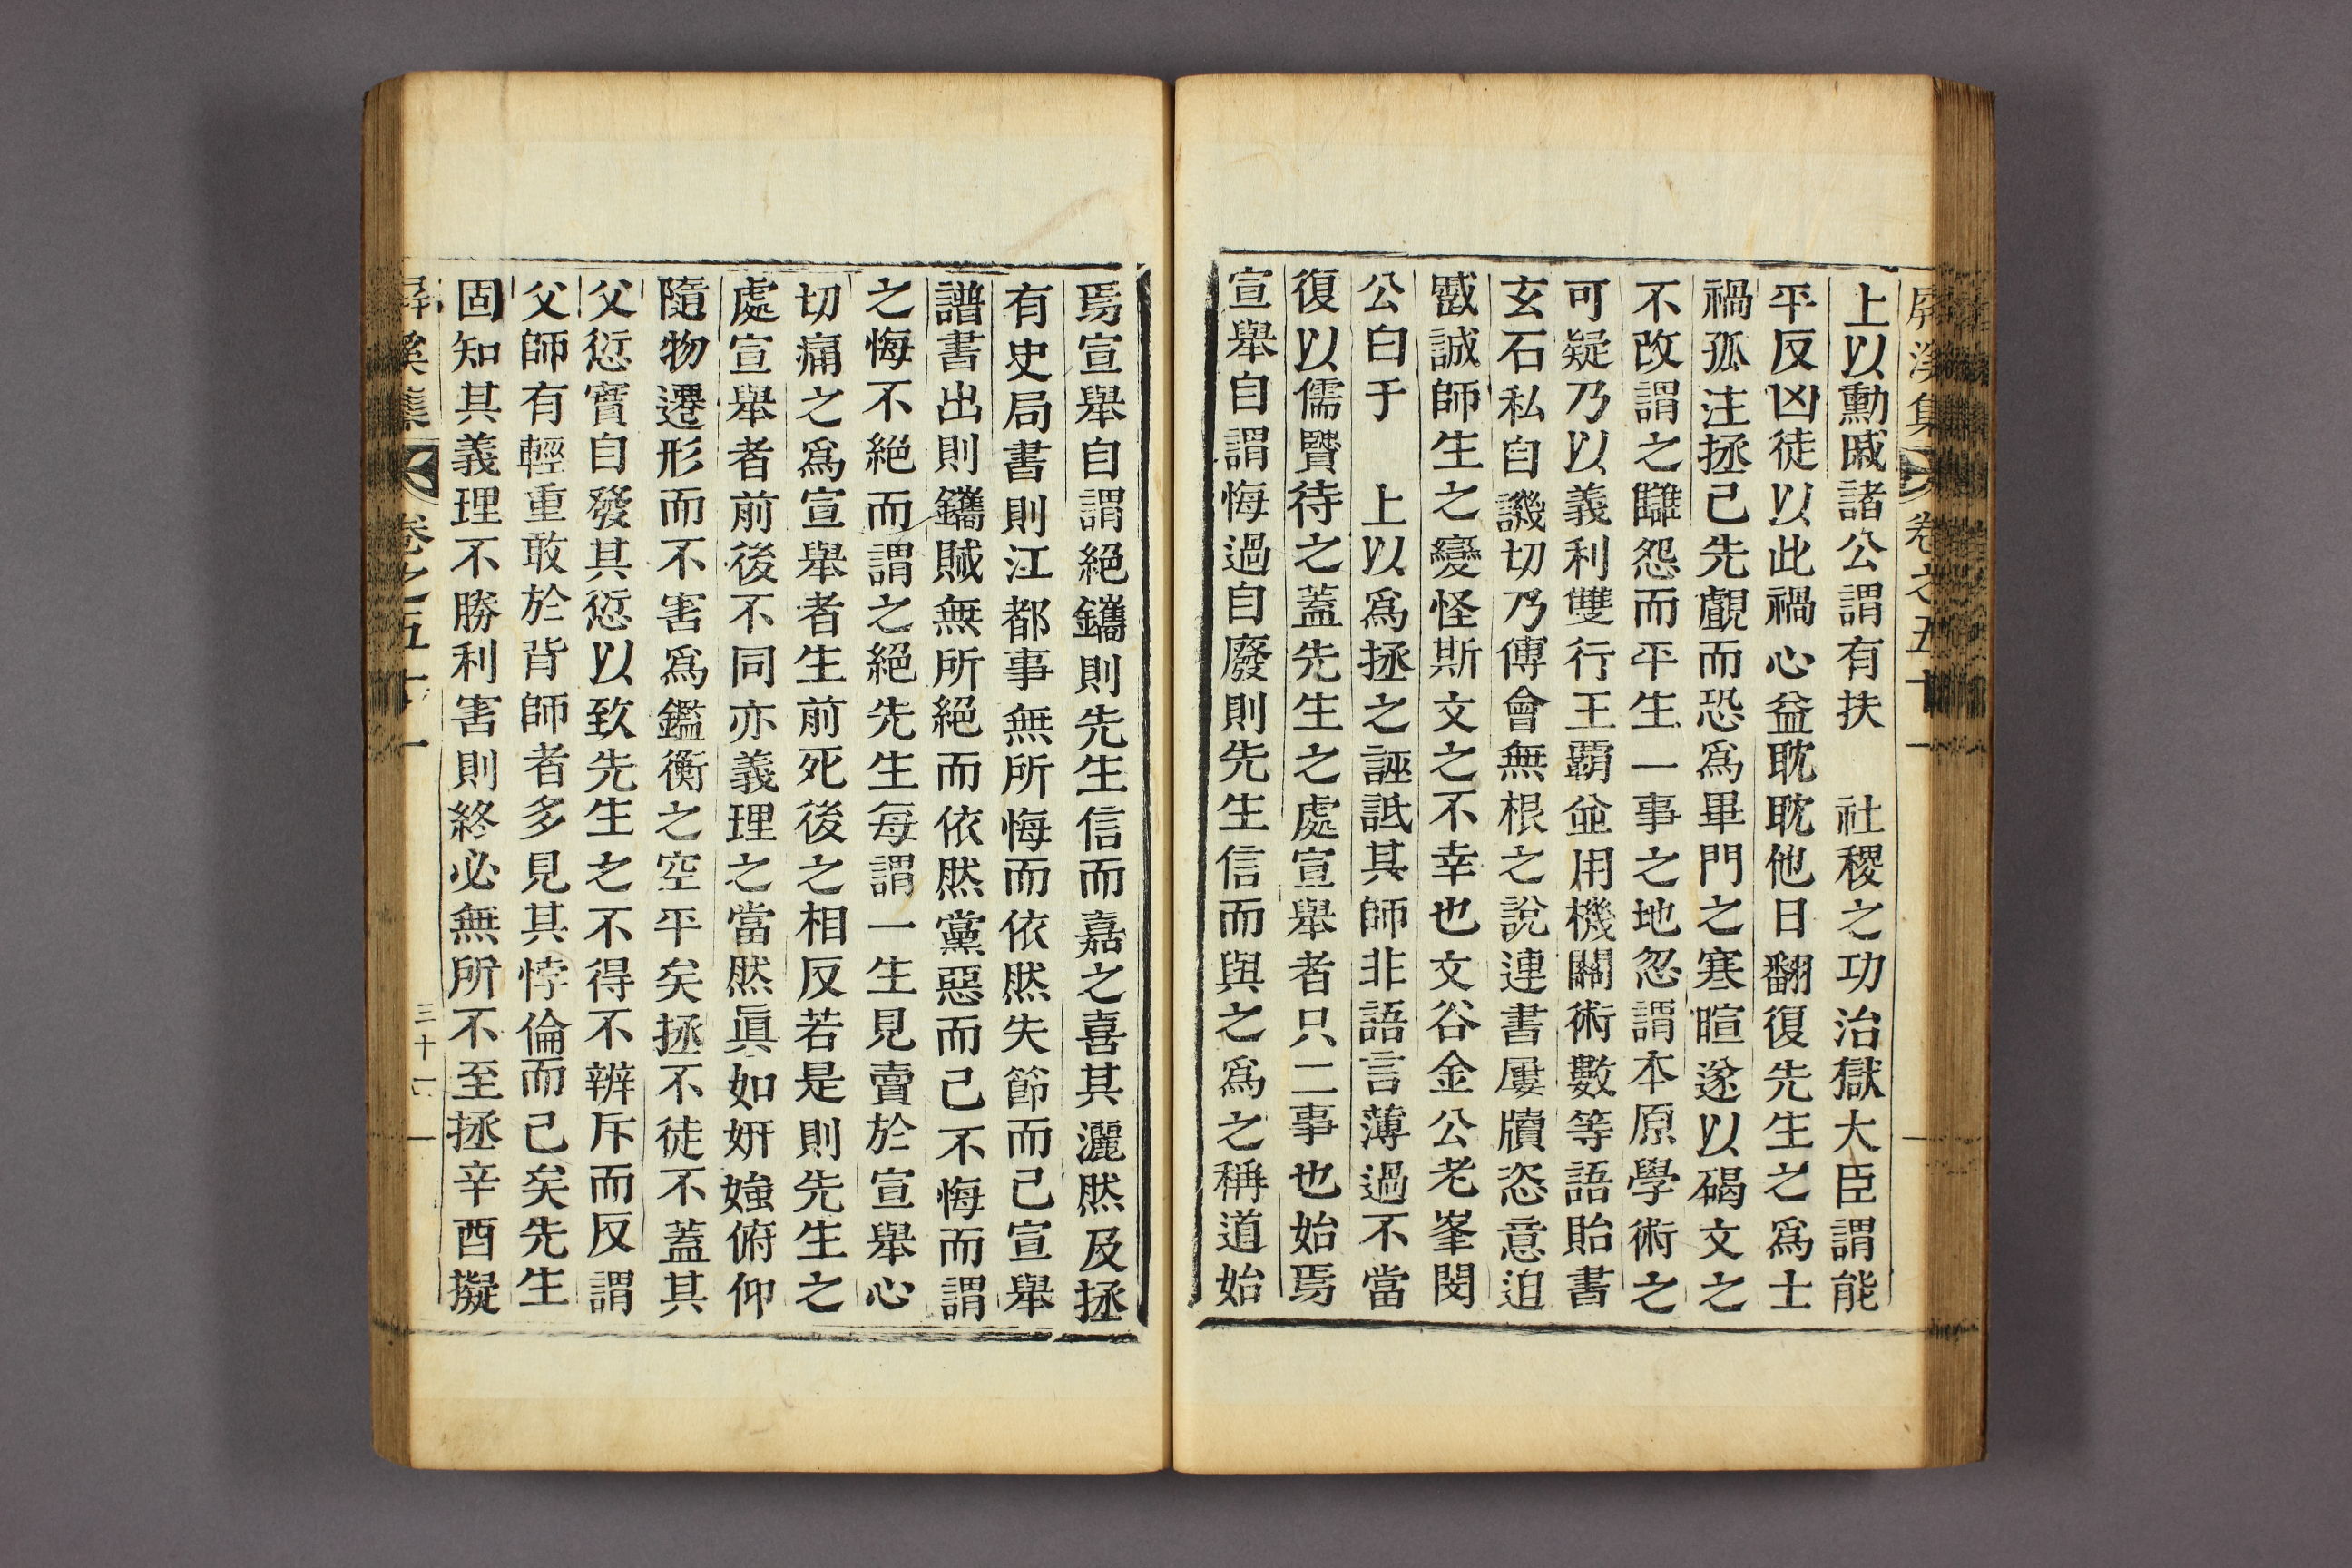 屛溪集 卷之五十一
上以勳戚諸公謂有扶 社稷之功治獄大臣謂能
平反凶徒以此禍心益耽耽他日翻復先生之爲士
禍孤注拯已先覰而恐爲畢門之寒暄遂以碣文之
不改謂之讎怨而平生一事之地忽謂本原學術之
可疑乃以義利雙行王覇並用機關術數等語貽書
玄石私自譏切乃傅會無根之說連書屢牘恣意迫
蹙誠師生之變怪斯文之不幸也文谷金公老峯閔
公白于 上以爲拯之誣詆其師非語言薄過不當
復以儒賢待之蓋先生之處宣擧者只二事也始焉
宣擧自謂悔過自廢則先生信而與之爲之稱道始
焉宣擧自謂絕鑴則先生信而嘉之喜其灑然及拯
有史局書則江都事無所悔而依然失節而已宣擧
譜書出則鑴賊無所絕而依然黨惡而已不悔而謂
之悔不絕而謂之絕先生每謂一生見賣於宣擧心
切痛之爲宣擧者生前死後之相反若是則先生之
處宣擧者前後不同亦義理之當然眞如姸媸俯仰
隨物遷形而不害爲鑑衡之空平矣拯不徒不蓋其
父愆實自發其愆以致先生之不得不辨斥而反謂
父師有輕重敢於背師者多見其悖倫而已矣先生
固知其義理不勝利害則終必無所不至拯辛酉擬
屛溪集 卷之五十一 三十一